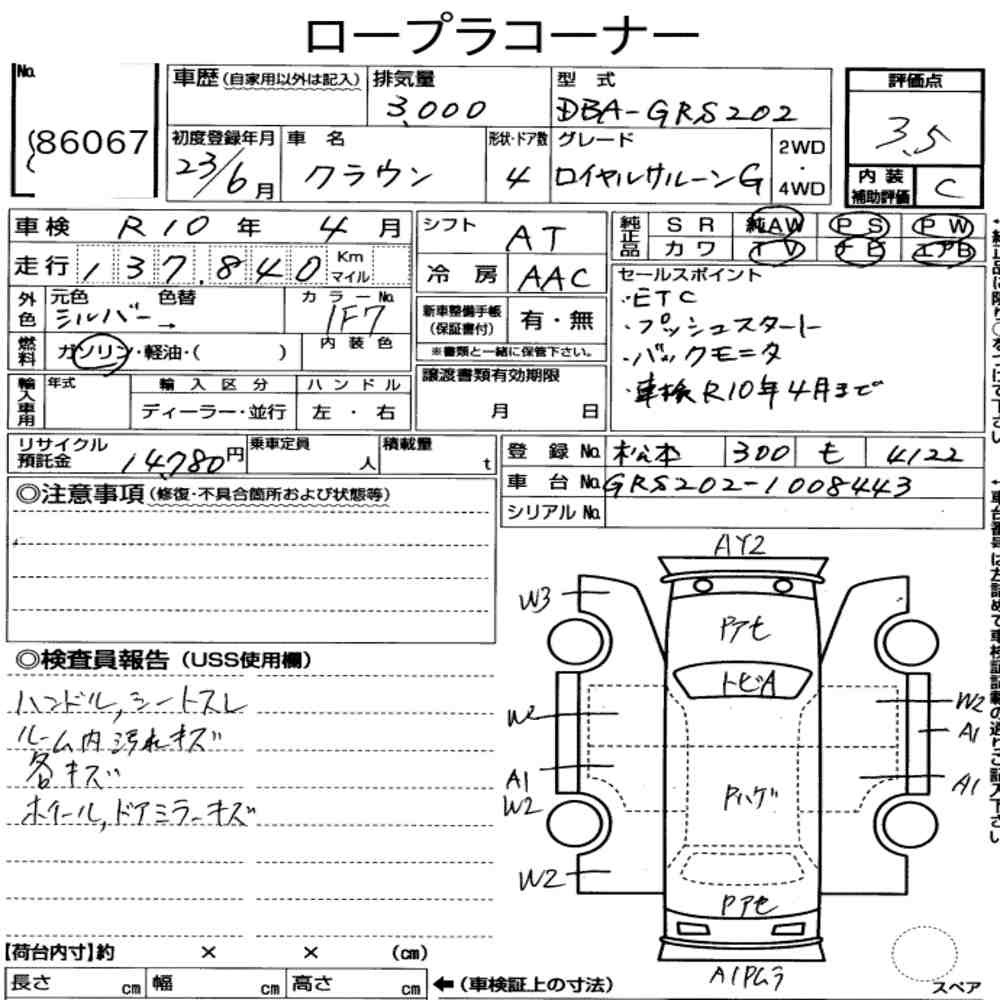 ロープラコーナー
No. 86067
車歴 (自家用以外は記入)
排気量 3,000
型式 DBA-GRS202
評価点 3.5
初度登録年月 23/6月
車名 クラウン
形状・ドア数 4
グレード ロイヤルサルーンG
2WD・4WD
内装補助評価 C
車検 R10年 4月
シフト AT
純正品 SR 純AW PS PW
カワ TV ナビ エアB
走行 137,840 Km マイル
冷房 AAC
セールスポイント
・ETC
・プッシュスタート
・バックモニタ
・車検R10年4月まで
外色 元色 色替 シルバー→
カラーNo. 1F7
新車整備手帳(保証書付) 有・無
※書類と一緒に保管下さい。
燃料 ガソリン・軽油・( )
内装色
輸入車用 年式
輸入区分 ディーラー・並行
ハンドル 左・右
譲渡書類有効期限
月 日
リサイクル預託金 14,780円
乗車定員 人
積載量 t
登録No. 松本 300 も 4122
車台No. GRS202-1008443
シリアルNo.
◎注意事項(修復・不具合箇所および状態等)
◎検査員報告(USS使用欄)
ハンドル,シートスレ
ルーム内汚れキズ
各キズ
ホイール,ドアミラーキズ
AY2
W3
Pアセ
トビA
W2
W2
A1
A1
W2
A1
Pハゲ
W2
Pアセ
A1Pムラ
スペア
【荷台内寸】約 × × (cm)
長さ cm 幅 cm 高さ cm
←(車検証上の寸法)